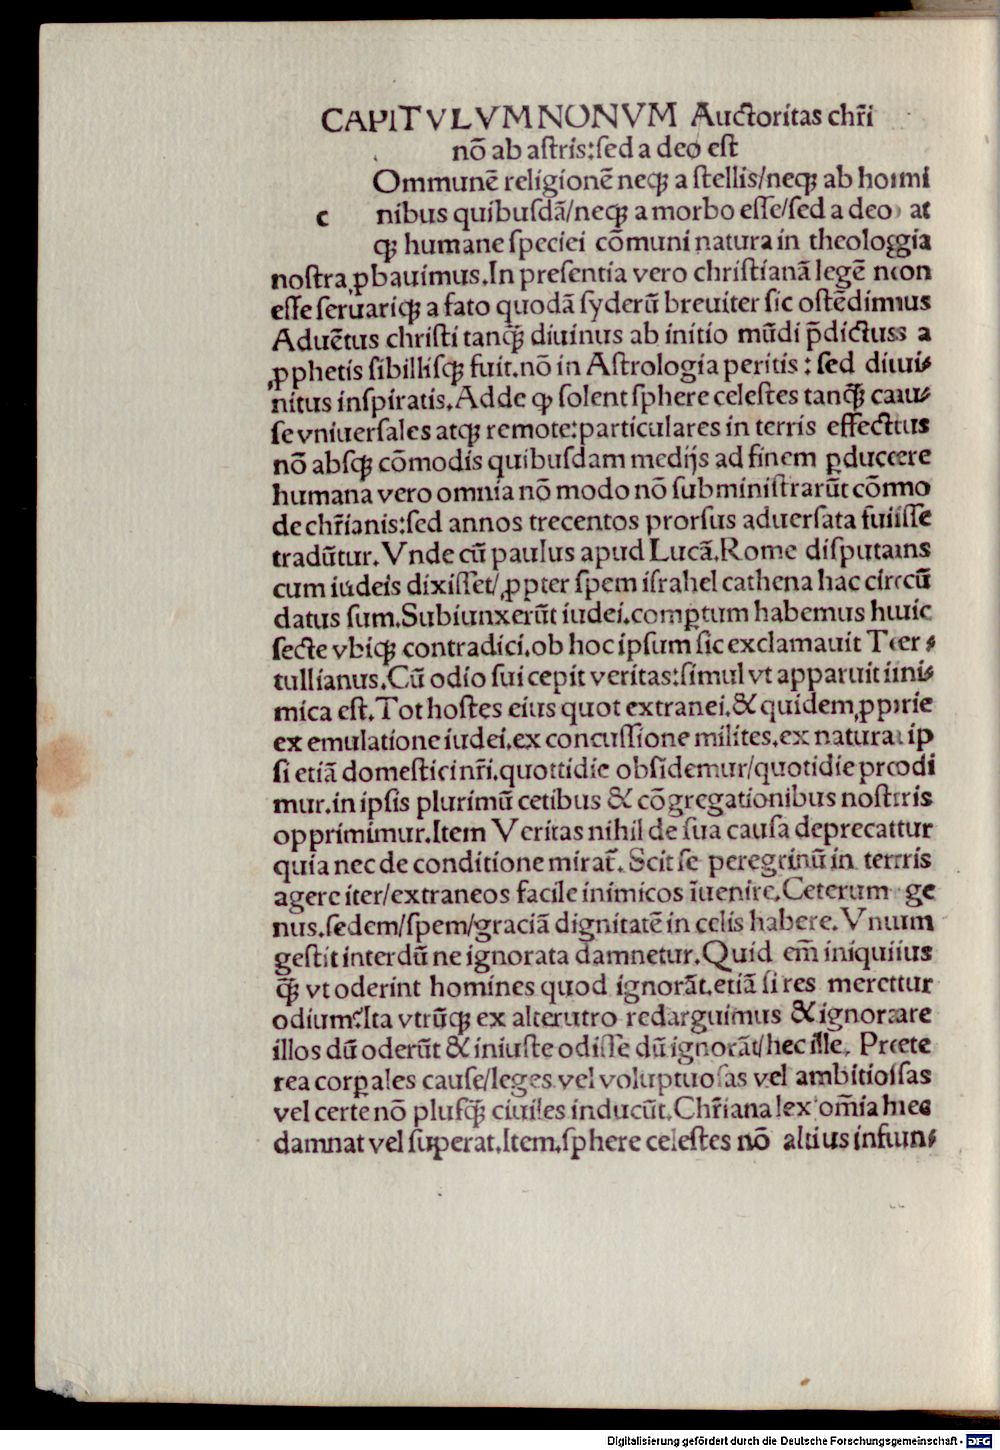 CAPITVLVM NONVM Auctoritas chr̄i
nō ab astris:sed a deo est
Ommunē religionē neqꝫ a stellis/neqꝫ ab homi
c nibus quibusdā/neqꝫ a morbo esse/sed a deo at
qꝫ humane speciei cōmuni natura in theologia
nostra ꝓbauimus.In presentia vero christianā legē non
esse seruariqꝫ a fato quodā syderū breuiter sic ostēdimus
Aduētus christi tanqꝫ̄ diuinus ab initio mūdi p̄dictus a
ꝓphetis sibillisqꝫ fuit.nō in Astrologia peritis : sed diui⸗
nitus inspiratis.Adde ꝙ solent sphere celestes tanqꝫ̄ cau⸗
se vniuersales atqꝫ remote:particulares in terris effectus
nō absqꝫ cōmodis quibusdam medijs ad finem ꝑducere
humana vero omnia nō modo nō subministrarūt cōmo
de chr̄ianis:sed annos trecentos prorsus aduersata fuisse
tradūtur.Vnde cū paulus apud Lucā.Rome disputans
cum iudeis dixisset/ꝓpter spem israhel cathena hac circū
datus sum.Subiunxerūt iudei.comꝑtum habemus huic
secte vbiqꝫ contradici.ob hoc ipsum sic exclamauit Ter⸗
tullianus.Cū odio sui cepit veritas:simul vt apparuit ini⸗
mica est.Tot hostes eius quot extranei.& quidem ꝓprie
ex emulatione iudei.ex concussione milites.ex natura ip
si etiā domestici nr̄i.quottidie obsidemur/quotidie prodi
mur.in ipsis plurimū cetibus & cōgregationibus nostris
opprimimur.Item Veritas nihil de sua causa deprecatur
quia nec de conditione mirat̄. Scit se peregrinū in terris
agere iter/extraneos facile inimicos īuenire.Ceterum ge
nus.sedem/spem/graciā dignitatē in celis habere. Vnum
gestit interdū ne ignorata damnetur.Quid em̄ iniquius
qꝫ̄ vt oderint homines quod ignorāt.etiā si res meretur
odium?Ita vtrūqꝫ ex alterutro redarguimus & ignorare
illos dū oderūt & iniuste odisse dū ignorāt/hec ille. Prete
rea corꝑales cause/leges vel voluptuosas vel ambitiosas
vel certe nō plusqꝫ̄ ciuiles inducūt.Chr̄iana lex om̄ia hec
damnat vel superat.Item.sphere celestes nō altius infun⸗
Digitalisierung gefördert durch die Deutsche Forschungsgemeinschaft - DFG